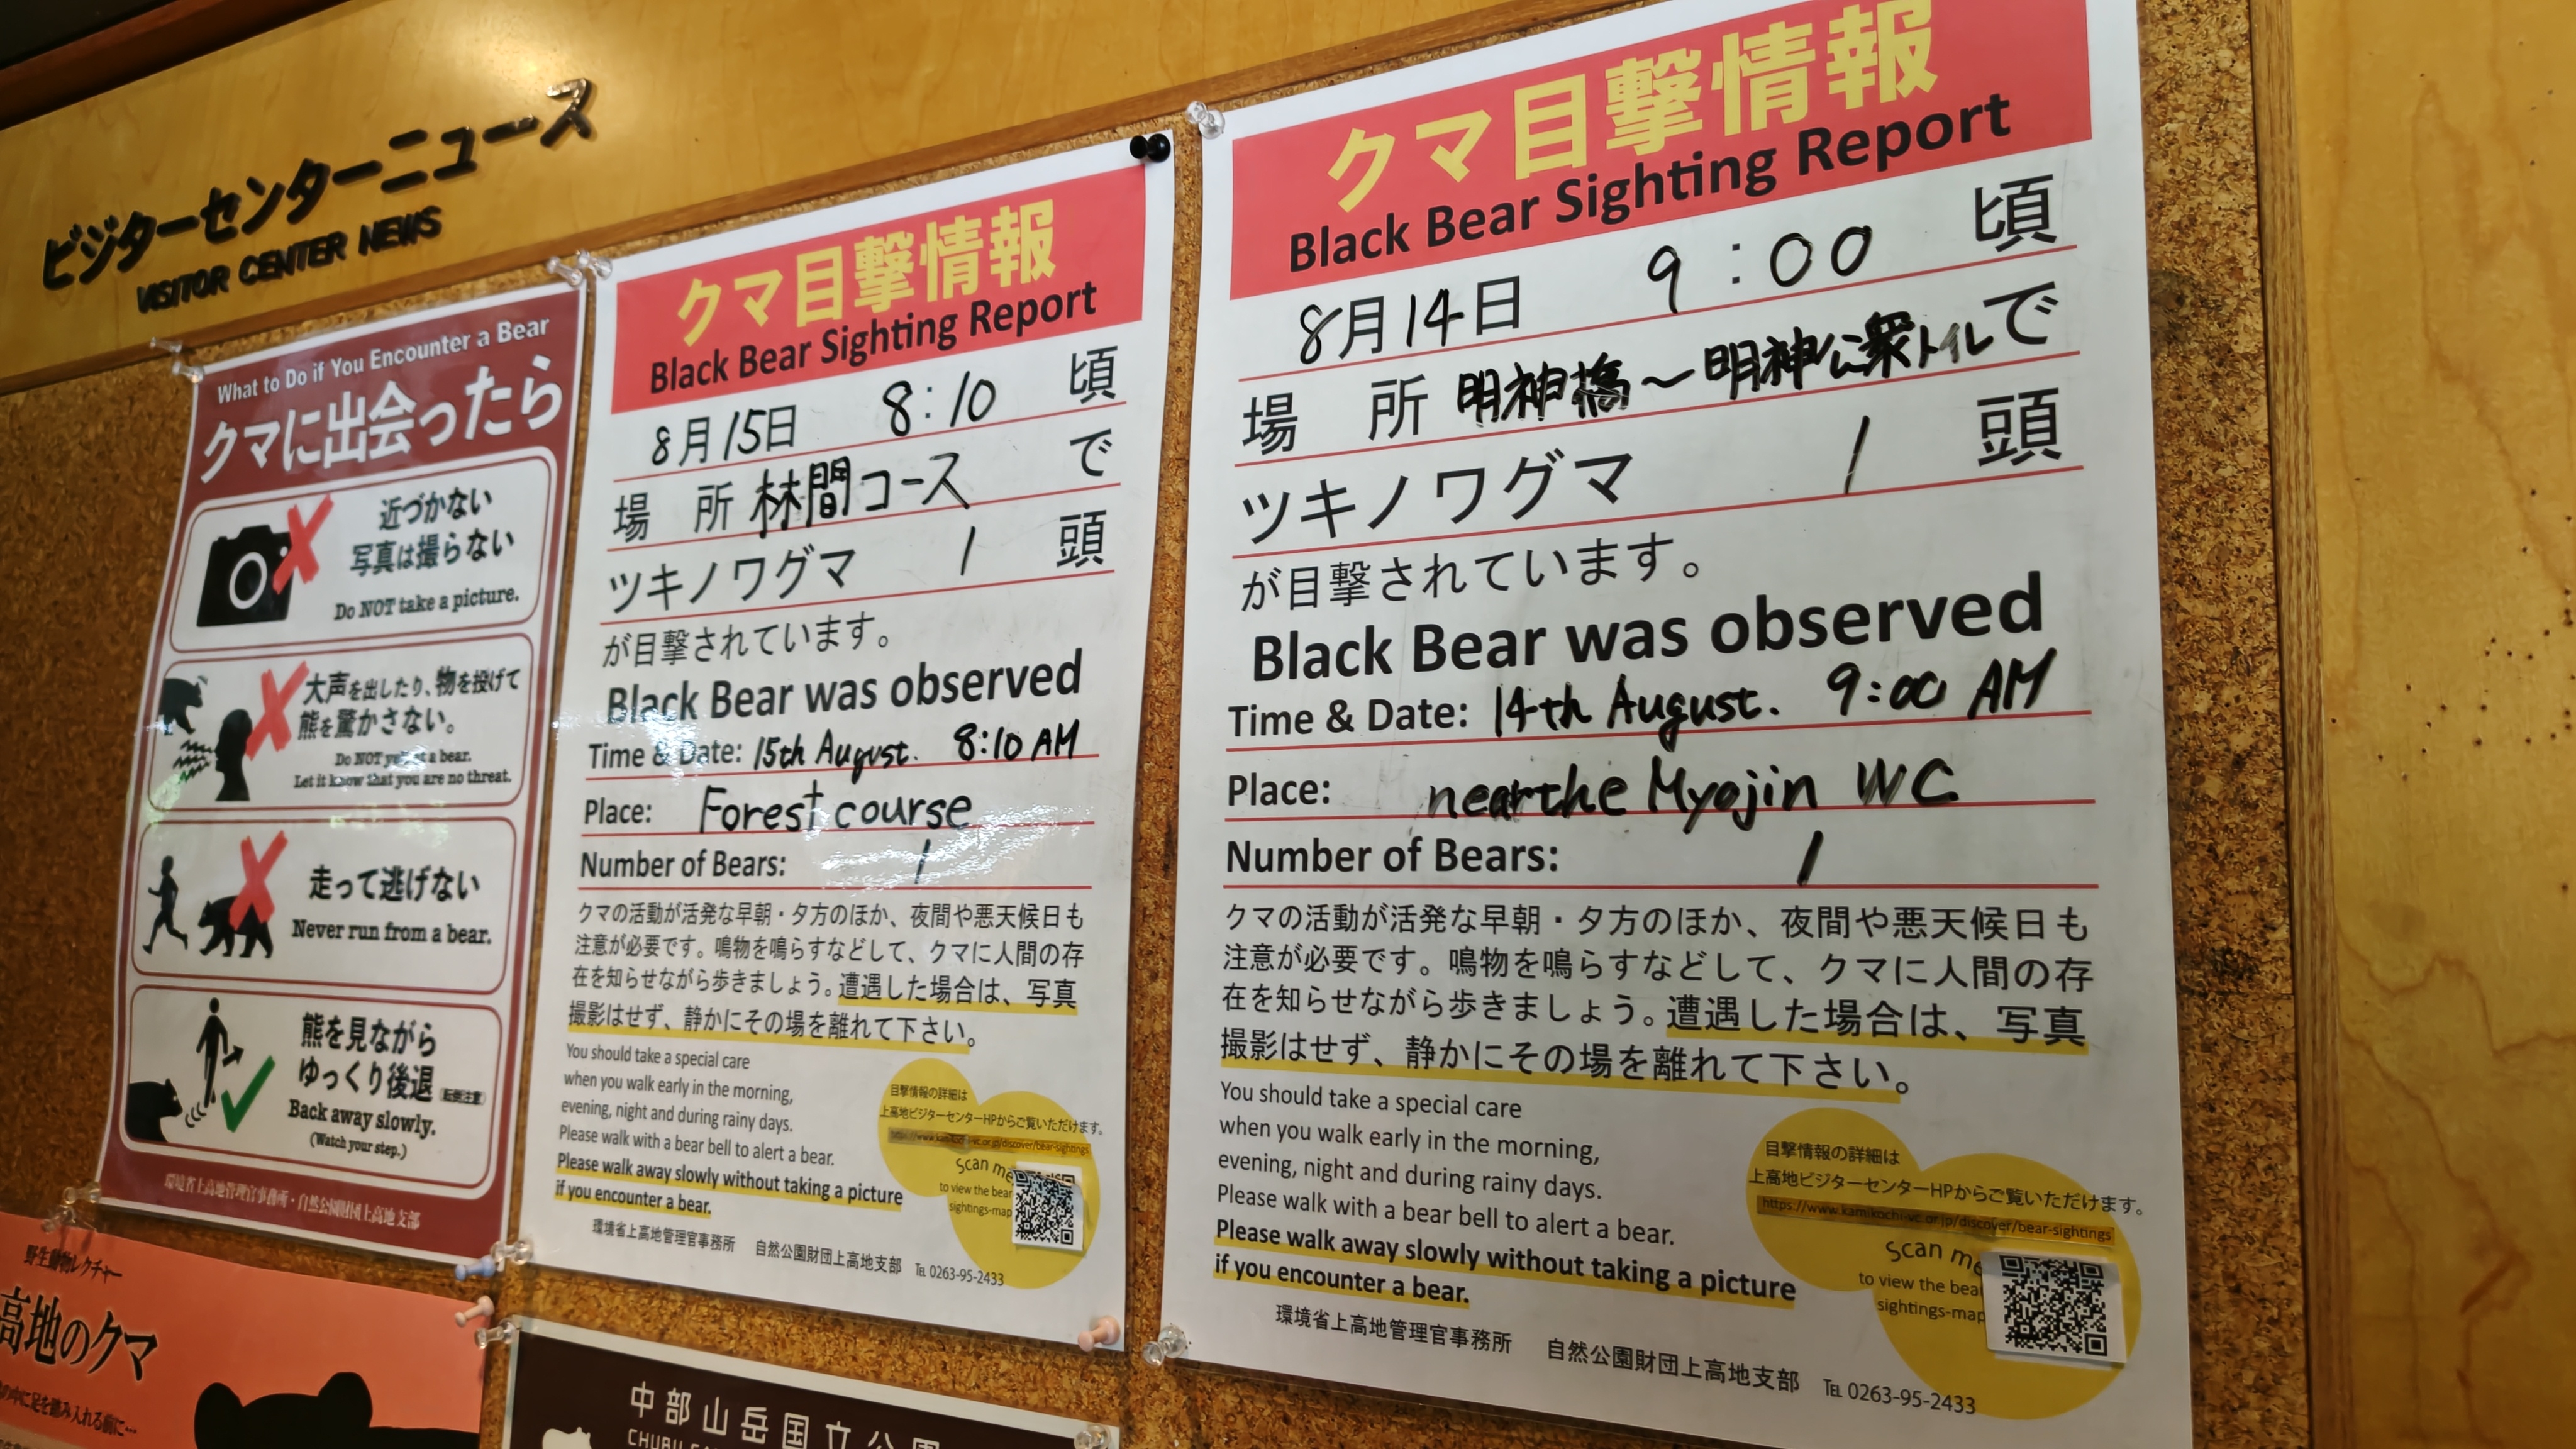 ビジターセンターニュース
VISITOR CENTER NEWS
What to Do if You Encounter a Bear
クマに出会ったら
近づかない
写真は撮らない
Do NOT take a picture.
大声を出したり、物を投げて
熊を驚かさない。
Do NOT yell at a bear.
Let it know that you are no threat.
走って逃げない
Never run from a bear.
熊を見ながら
ゆっくり後退(転倒注意)
Back away slowly.
(Watch your step.)
環境省上高地管理官事務所・自然公園財団上高地支部
野生動物レクチャー
高地のクマ
の中に足を踏み入れる前に…
クマ目撃情報
Black Bear Sighting Report
8月15日 8:10 頃
場所 林間コース で
ツキノワグマ 1 頭
が目撃されています。
Black Bear was observed
Time & Date: 15th August. 8:10 AM
Place: Forest course
Number of Bears: 1
クマの活動が活発な早朝・夕方のほか、夜間や悪天候日も
注意が必要です。鳴物を鳴らすなどして、クマに人間の存
在を知らせながら歩きましょう。遭遇した場合は、写真
撮影はせず、静かにその場を離れて下さい。
You should take a special care
when you walk early in the morning,
evening, night and during rainy days.
Please walk with a bear bell to alert a bear.
Please walk away slowly without taking a picture
if you encounter a bear.
目撃情報の詳細は
上高地ビジターセンターHPからご覧いただけます。
https://www.kamikochi-vc.or.jp/discover/bear-sightings
Scan me
to view the bear
sightings-map
環境省上高地管理官事務所 自然公園財団上高地支部 TEL 0263-95-2433
中部山岳国立公園
クマ目撃情報
Black Bear Sighting Report
8月14日 9:00 頃
場所 明神橋～明神公衆トイレで
ツキノワグマ 1 頭
が目撃されています。
Black Bear was observed
Time & Date: 14th August. 9:00 AM
Place: near the Myojin WC
Number of Bears: 1
クマの活動が活発な早朝・夕方のほか、夜間や悪天候日も
注意が必要です。鳴物を鳴らすなどして、クマに人間の存
在を知らせながら歩きましょう。遭遇した場合は、写真
撮影はせず、静かにその場を離れて下さい。
You should take a special care
when you walk early in the morning,
evening, night and during rainy days.
Please walk with a bear bell to alert a bear.
Please walk away slowly without taking a picture
if you encounter a bear.
目撃情報の詳細は
上高地ビジターセンターHPからご覧いただけます。
https://www.kamikochi-vc.or.jp/discover/bear-sightings
Scan me
to view the bear
sightings-map
環境省上高地管理官事務所 自然公園財団上高地支部 TEL 0263-95-2433